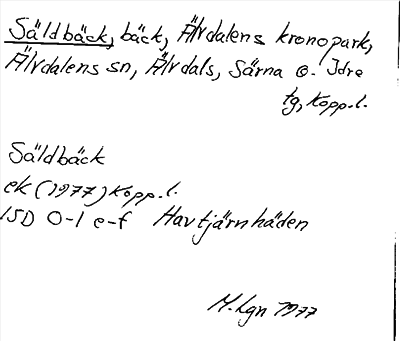 Säldbäck, bäck, Älvdalens kronopark,
Älvdalens sn, Älvdals, Särna o. Idre
tg, Kopp.l.
Säldbäck
ek (1977) Kopp.l.
15D 0-1 e-f Havtjärnhäden
M.Lgn 1977